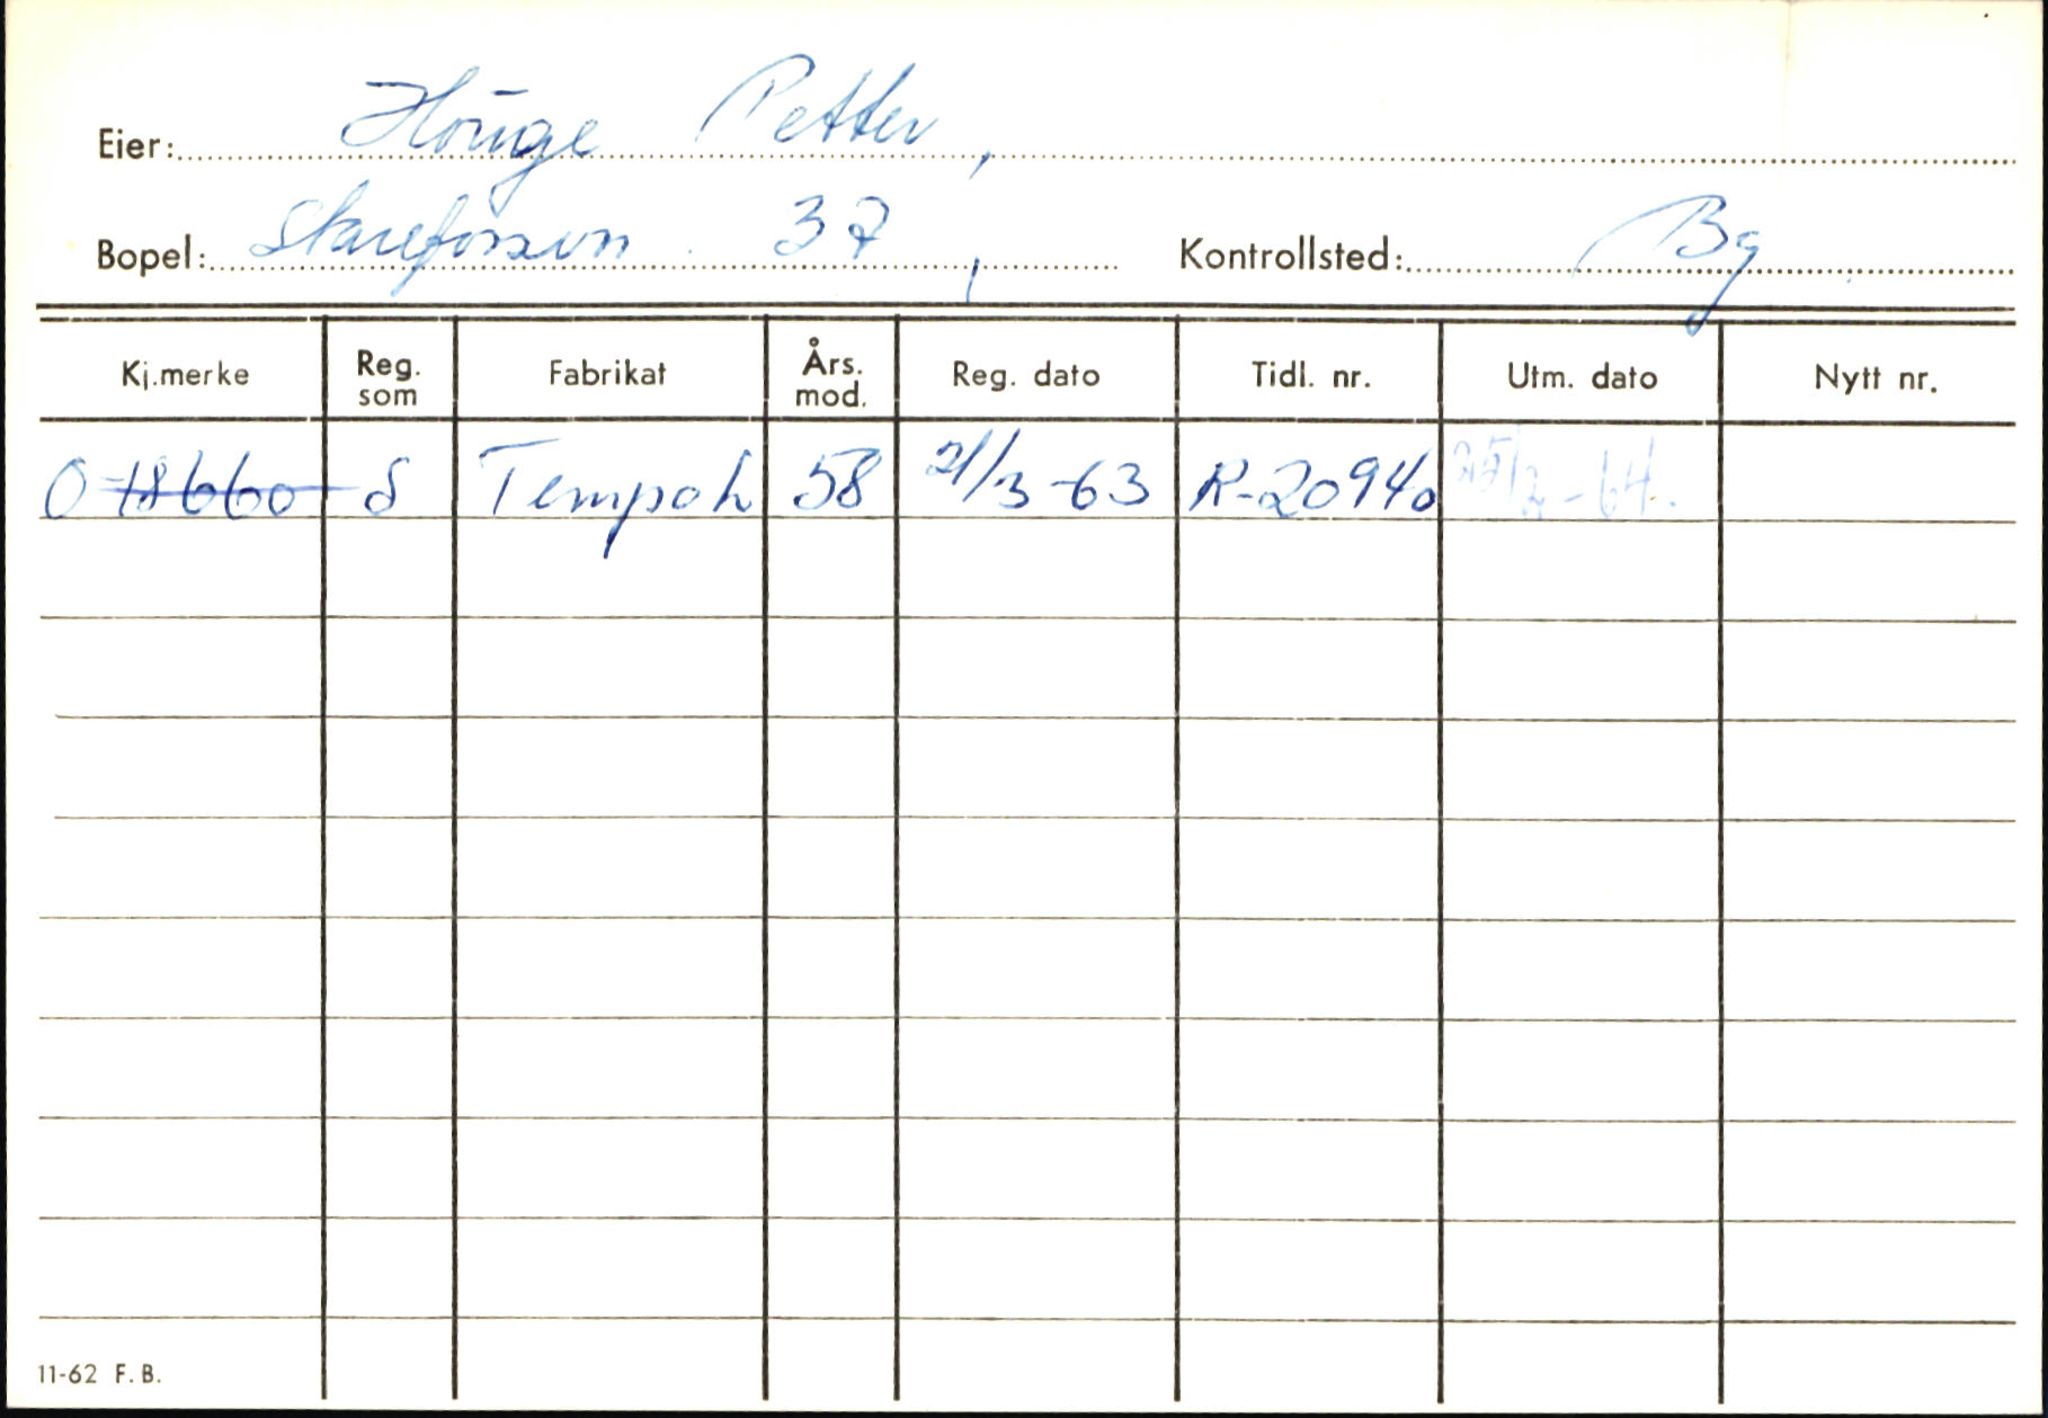 Eier: Hönge Petter,
Bopel: 37, Kontrollsted: Bg
Kj.merke Reg. som Fabrikat Års. mod. Reg. dato Tidl. nr. Utm. dato Nytt nr.
O-18660 S Tempoh 58 21/3-63 R-20940 -64.
11-62 F. B.